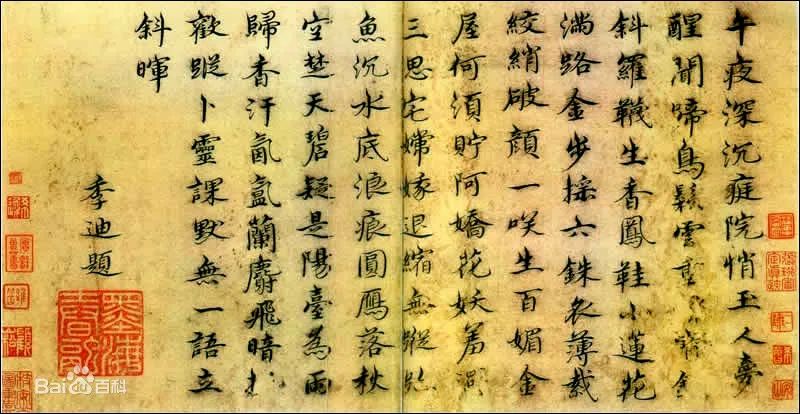 午夜深沉庭院悄玉人夢
醒聞啼鳥鬆雲重
斜羅韈生香鳳鞋小蓮花
滿路金步採六銖衣薄裁
絞綃破顏一咲生百媚金
屋何須貯阿嬌花妖羞
三思宅嫦娥退縮無蹤跡
魚沉水底浪痕圓鴈落秋
空楚天碧疑是陽臺為雨
歸香汗氤氳蘭麝飛暗
歡蹤卜靈課默無一語立
斜暉
季迪題
Bai百科